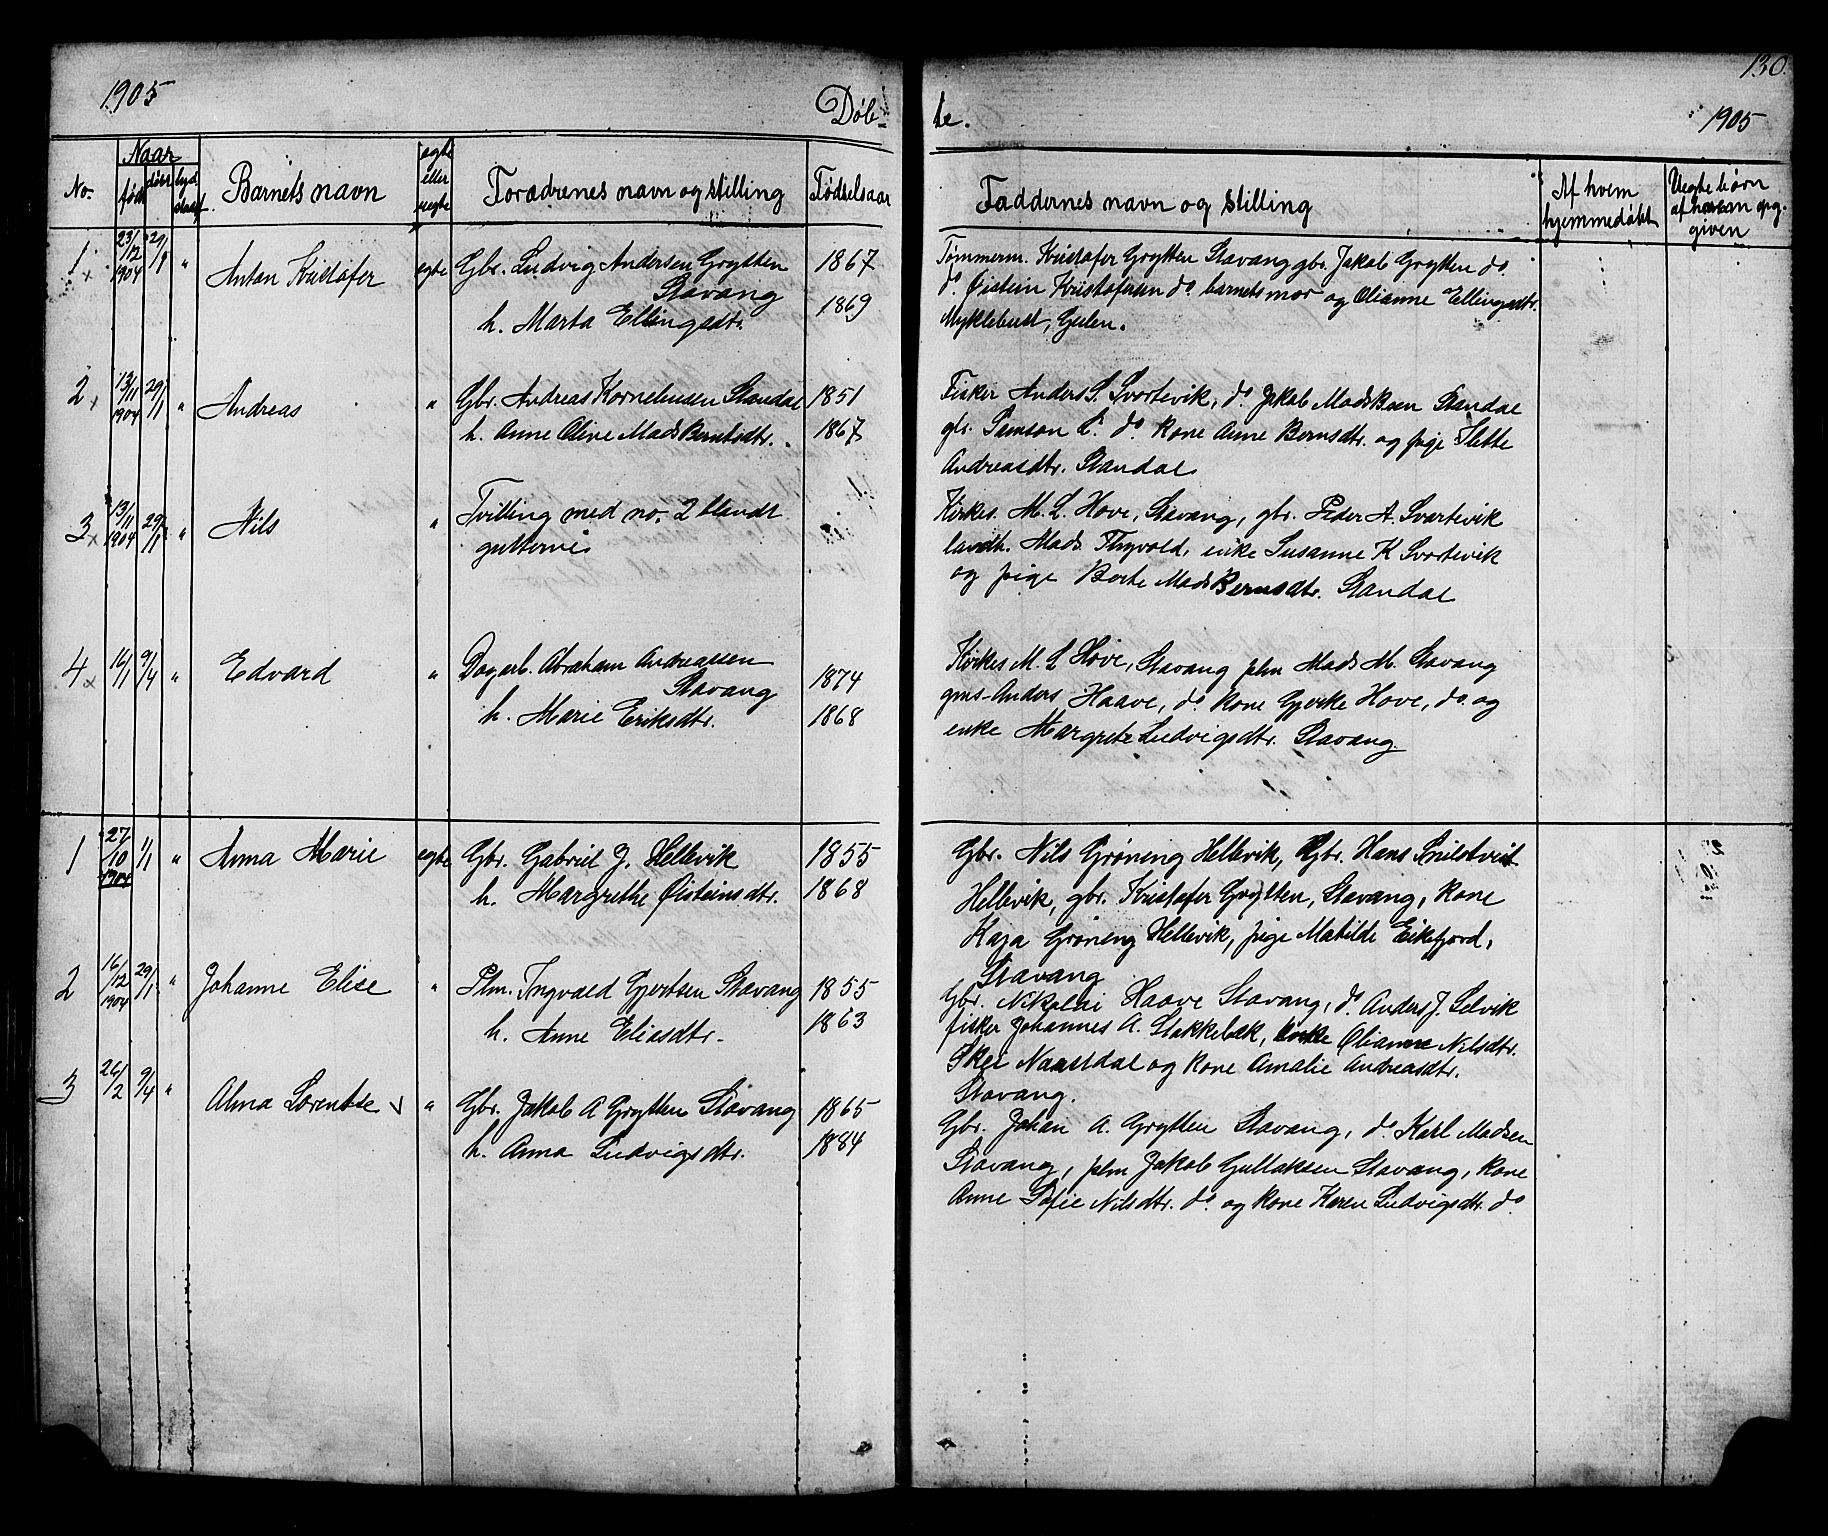 1905
Døb-
No.
Naar
født
døbt
Barnets navn
egte eller uegte
Forældrenes navn og stilling
Fødselsaar
1 23/12 1904 29/1 " Anton Kristofer egte Gbr. Ludvig Andersen Grytten 1867
Stavang
h. Marta Ellingsdtr. 1869
2 13/11 1904 29/1 " Andreas " Gbr. Andreas Korneliussen Standal 1851
h. Anne Oline Mads Berntsdtr. 1867
3 13/11 1904 29/1 " Nils " Tvilling med no. 2 blandt
gutterne
4 16/1 9/4 " Edvard " Dagarb. Abraham Andreassen
Stavang 1874
h. Marie Eriksdtr. 1868
1 27/10 1904 1/1 " Anna Marie egte Gbr. Gabriel J. Hellevik 1855
h. Margrethe Øisteinsdtr. 1868
2 16/12 1904 29/1 " Johanne Elise " Plm. Ingvald Gjertsen Stavang 1855
h. Anne Eliasdtr. 1863
3 26/2 9/4 " Alma Lorentse " Gbr. Jakob A Grytten Stavang 1865
h. Anna Ludvigsdtr. 1884
130.
te.
1905
Faddernes navn og stilling
Af hvem
hjemmedøbt
Uegte børn
af hvem opg-
given
Tømmerm. Kristofer Grytten Stavang, gbr. Jakob Grytten do.
do. Øistein Kristofersen do. barnets mor og Olianne Ellingsdtr.
Myklebust, Gulen.
Fisker Anders S. Svortevik, do. Jakob Mads Bsen Standal
gbr. Samson do. kone Anne Bernsdtr. og pige
Andreasdtr. Standal
Kirkes. M. L. Hove, Stavang, gbr. Peder A. Svartevik
landh. Mads Thyvold, enke Susanne K Svortevik
og pige Berte Mads Bernsdtr. Standal
Kirkes M. L Hove, Stavang plm Mads M. Stavang
gms. Anders Haave, do. kone Gjertie Hove, do. og
enke Margrete Ludvigsdtr. Stavang.
Gbr. Nils Grøneng Hellevik, Gbr. Hans
Hellevik, gbr. Kristofer Grytten, Stavang, kone
Kaja Grøneng Hellevik, pige Matilde Eikefjord,
Stavang
Gbr. Nikolai Haave Stavang, do. Anders J. Selvik
fisker Johannes A. Stokkebæk, enke Olianne Nilsdtr.
Skei Naustdal og kone Amalie Andreasdtr.
Stavang.
Gbr. Johan A. Grytten Stavang, do. Karl Madsen
Stavang, plm Jakob Gullaksen Stavang, kone
Anne Sofie Nilsdtr. do. og kone Karen Ludvigsdtr. do